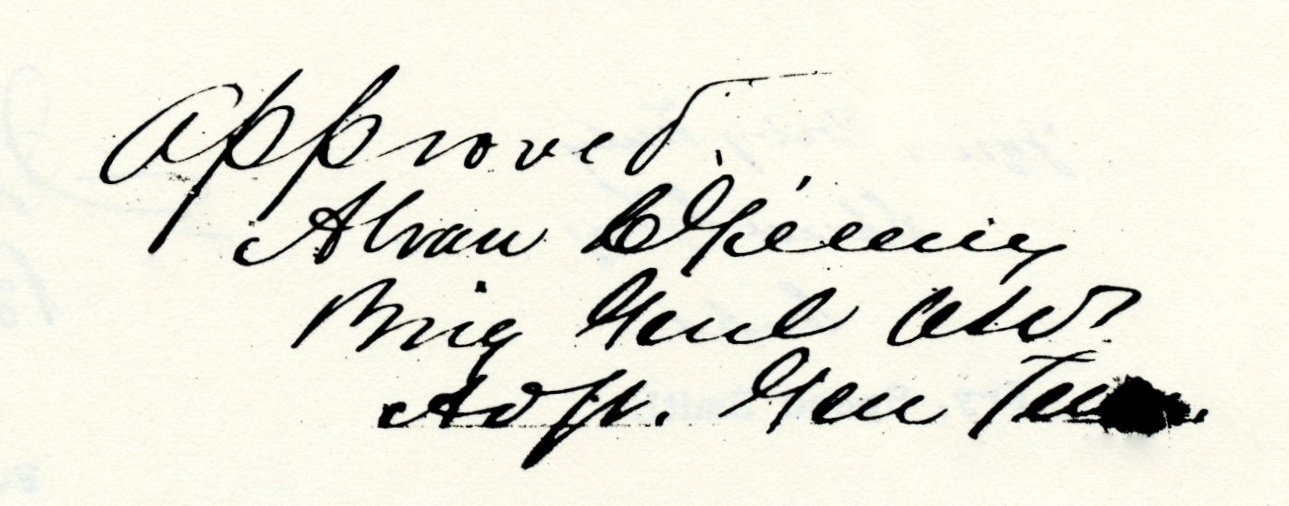 Approved.
Alvan C Gillem
Brig Genl and
Adjt. Gen Tenn.